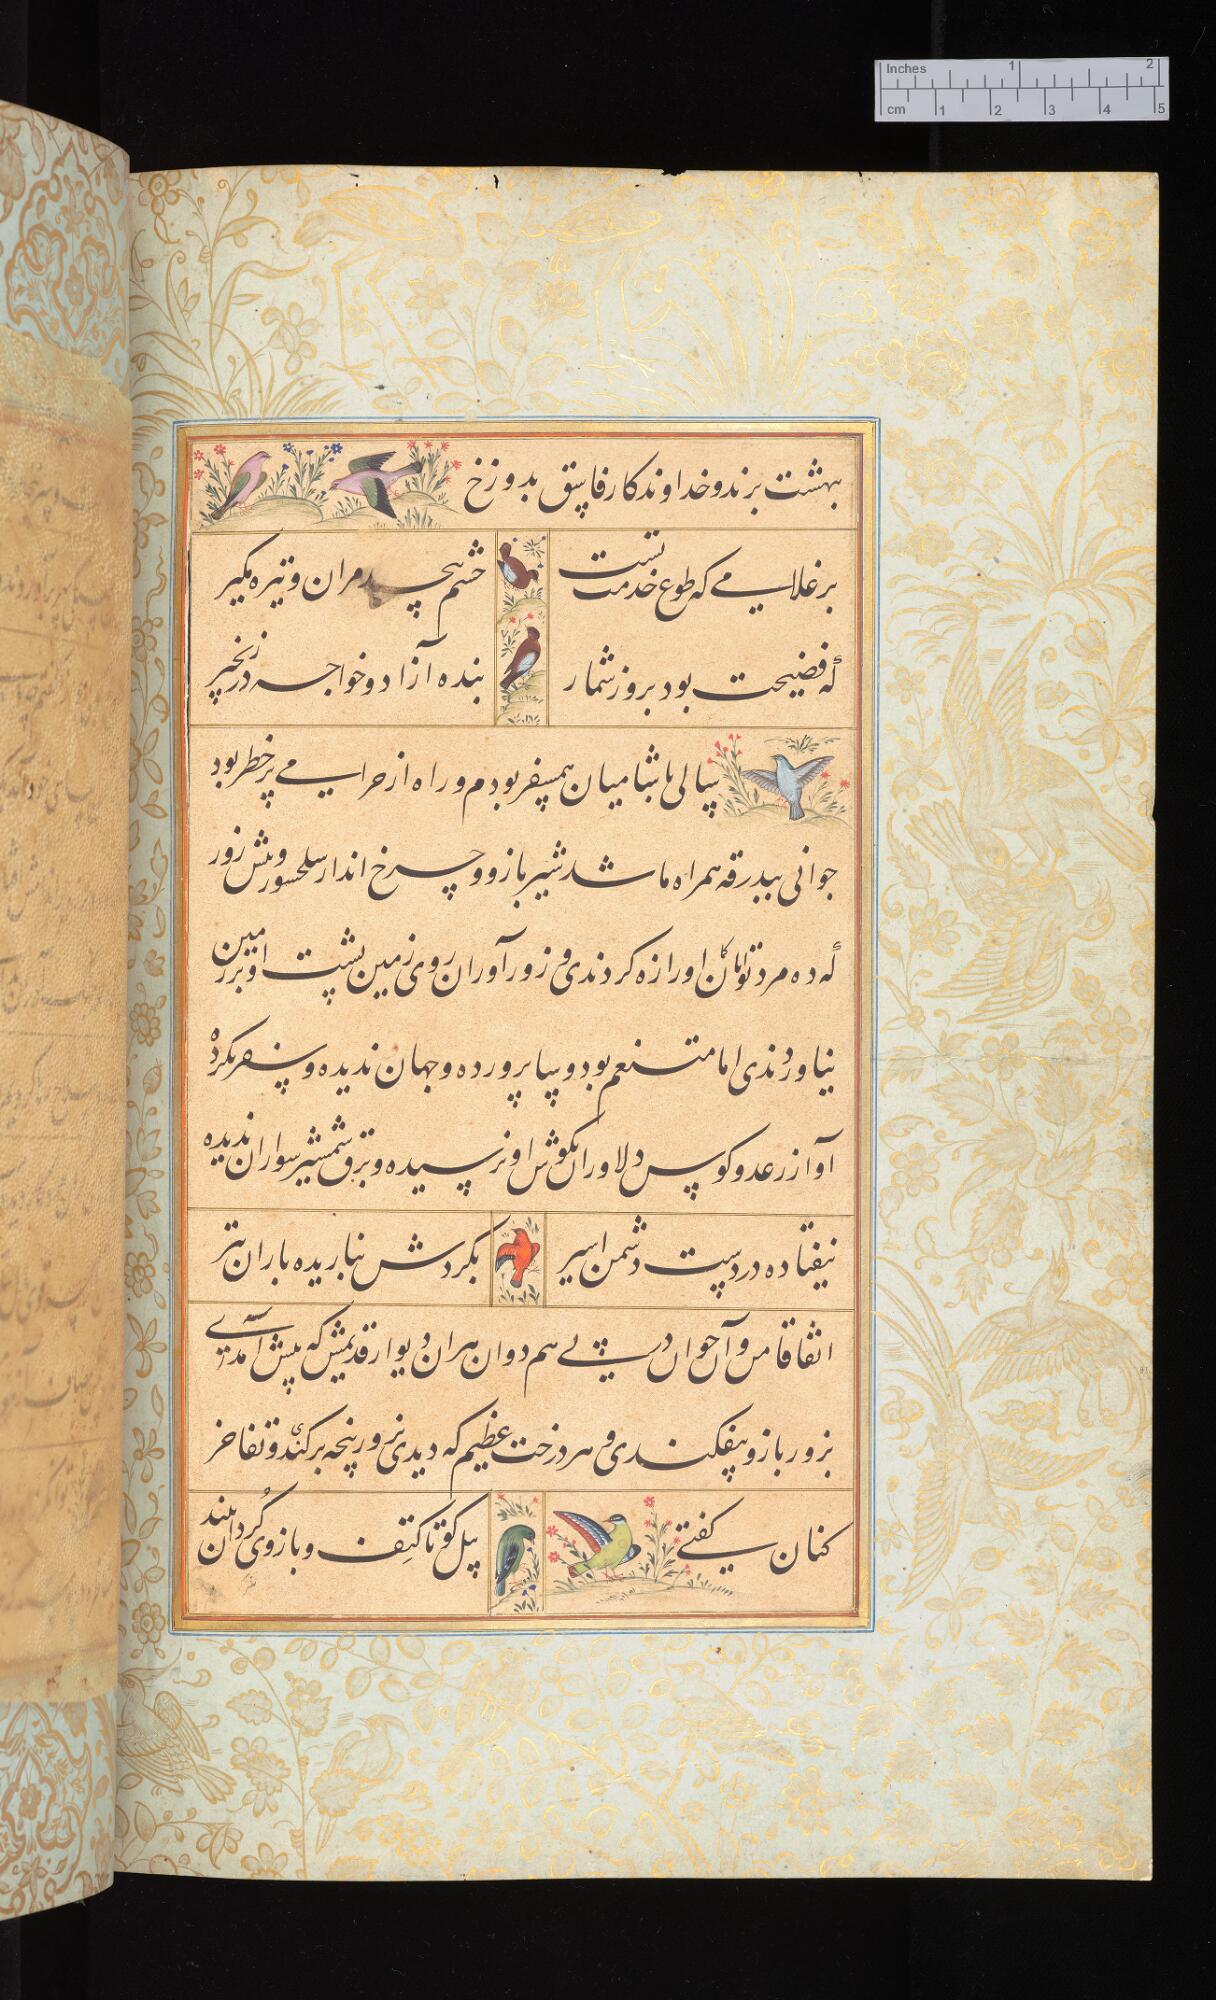 Inches 1 2
cm 1 2 3 4 5
بهشت برند و خداوندکار فاسق بدوزخ
بر غلامی که طوع خدمت تست خشم بیحد مران و تیره مگیر
که فضیحت بود بروز شمار بنده آزاد و خواجه در زنجیر
سالی با شامیان همسفر بودم و راه از حرامی پر خطر بود
جوانی ببدرقه همراه ما شد شیر بازو و چرخ انداز سلحشور و بیش زور
که ده مرد توانا کمان او را زه کردندی و زور آوران روی زمین پشت او بر زمین
نیاوردندی اما متنعم بود و سایه پرورده و جهان ندیده و سفر نکرده
آواز رعد و کوس دلاوران بگوش او نرسیده و برق شمشیر سواران ندیده
نیفتاده در دست دشمن اسیر بگردش نباریده باران تیر
اتفاقا من و آن جوان در پی هم دوان هر آن دیوار قدیمش که پیش آمدی
بزور بازو بیفکندی و هر درخت عظیم که دیدی بزور پنجه برکندی و تفاخر
کنان گفتی پیل کو تا کتف و بازوی گردان بیند